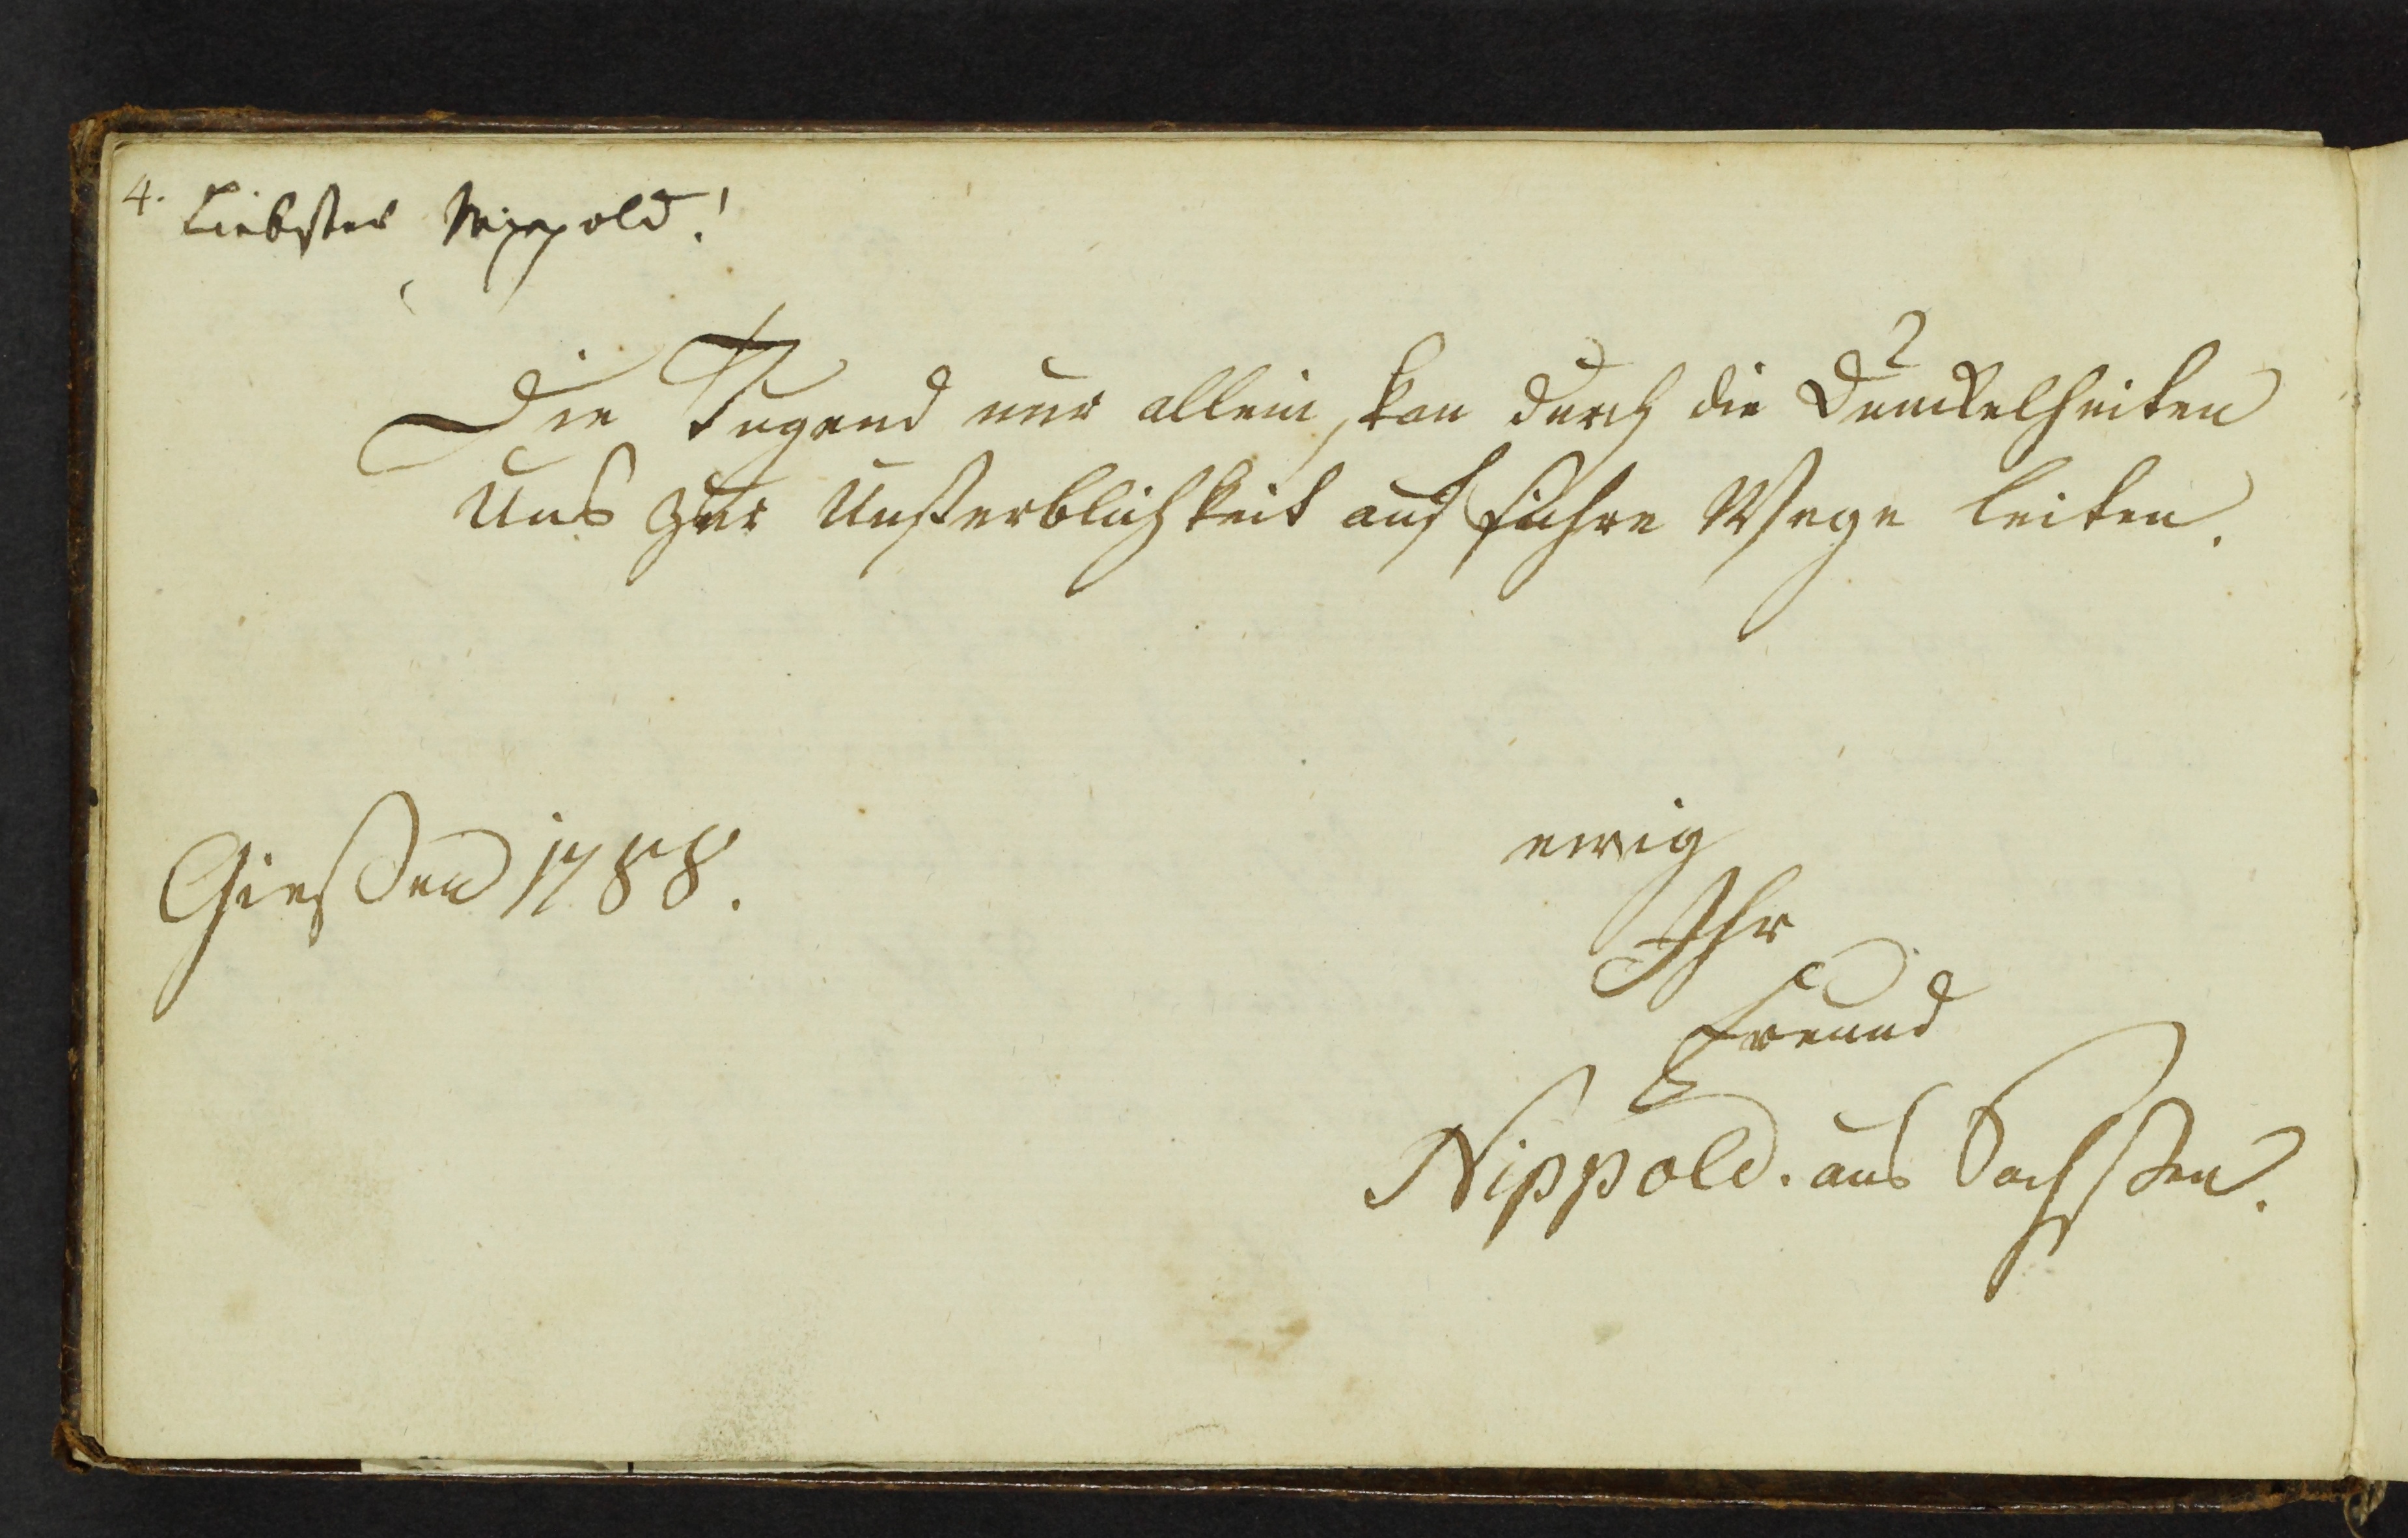 4. Liebster Nippold!
Die Tugend nur allein, kan durch die Dunckelheiten
Uns zur Unsterblichkeit auf sichre Wege leiten.
Giessen 1788.
ewig
Ihr
Freund
Nippold. aus Sachssen.